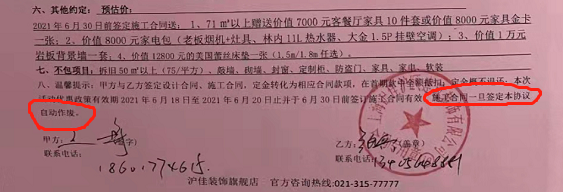 六、其他约定： 预估价：
2021年6月30日前签定施工合同送：1、71㎡以上赠送价值7000元客餐厅家具10件套或价值8000元家具金卡
一张；2、价值8000元家电包（老板烟机+灶具、林内11L热水器、大金1.5P挂壁空调）；3、价值1万元
岩板背景墙一套；4、价值12800元的美国蕾丝床垫一张（1.5m/1.8m任选）。
七、不包项目：拆旧50㎡以上（75/平方）、敲墙、砌墙、封窗、定制柜、防盗门、家具、家电、软装
八、温馨提示：甲方与乙方签定设计合同、施工合同，定金转化为相应合同款项，在首期款中全额抵扣，定金概不退还；本次
活动优惠政策有效期2021年6月18日至2021年6月20日止并于6月30日前签订施工合同有效，施工合同一旦签定本协议
自动作废。
甲方： 字） 乙方： （盖章）
联系电话： 18601774615 联系电话：
沪佳装饰旗舰店 官方咨询热线：021-315-77777